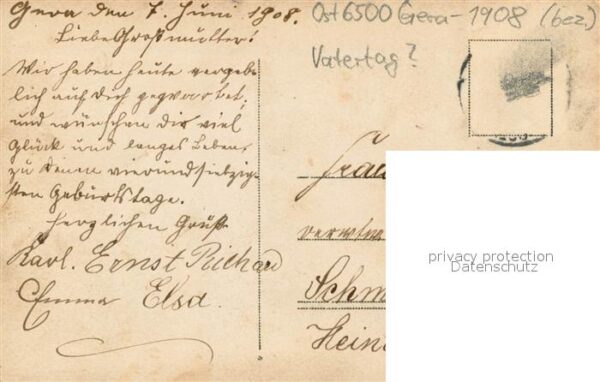 Gera den 7. Juni 1908.
Liebe Großmutter!
Wir haben heute vergeb-
lich auf Dich gewartet,
und wünschen Dir viel
Glück und langes Leben,
zu Deinen vierundsiebzig-
sten Geburtstage.
Herzlichen Gruß
Karl. Ernst Richard
Emma Elsa.
Ost 6500 Gera - 1908 (bez.)
Vatertag?
Frau
verwtw
Schm
Hein
privacy protection
Datenschutz